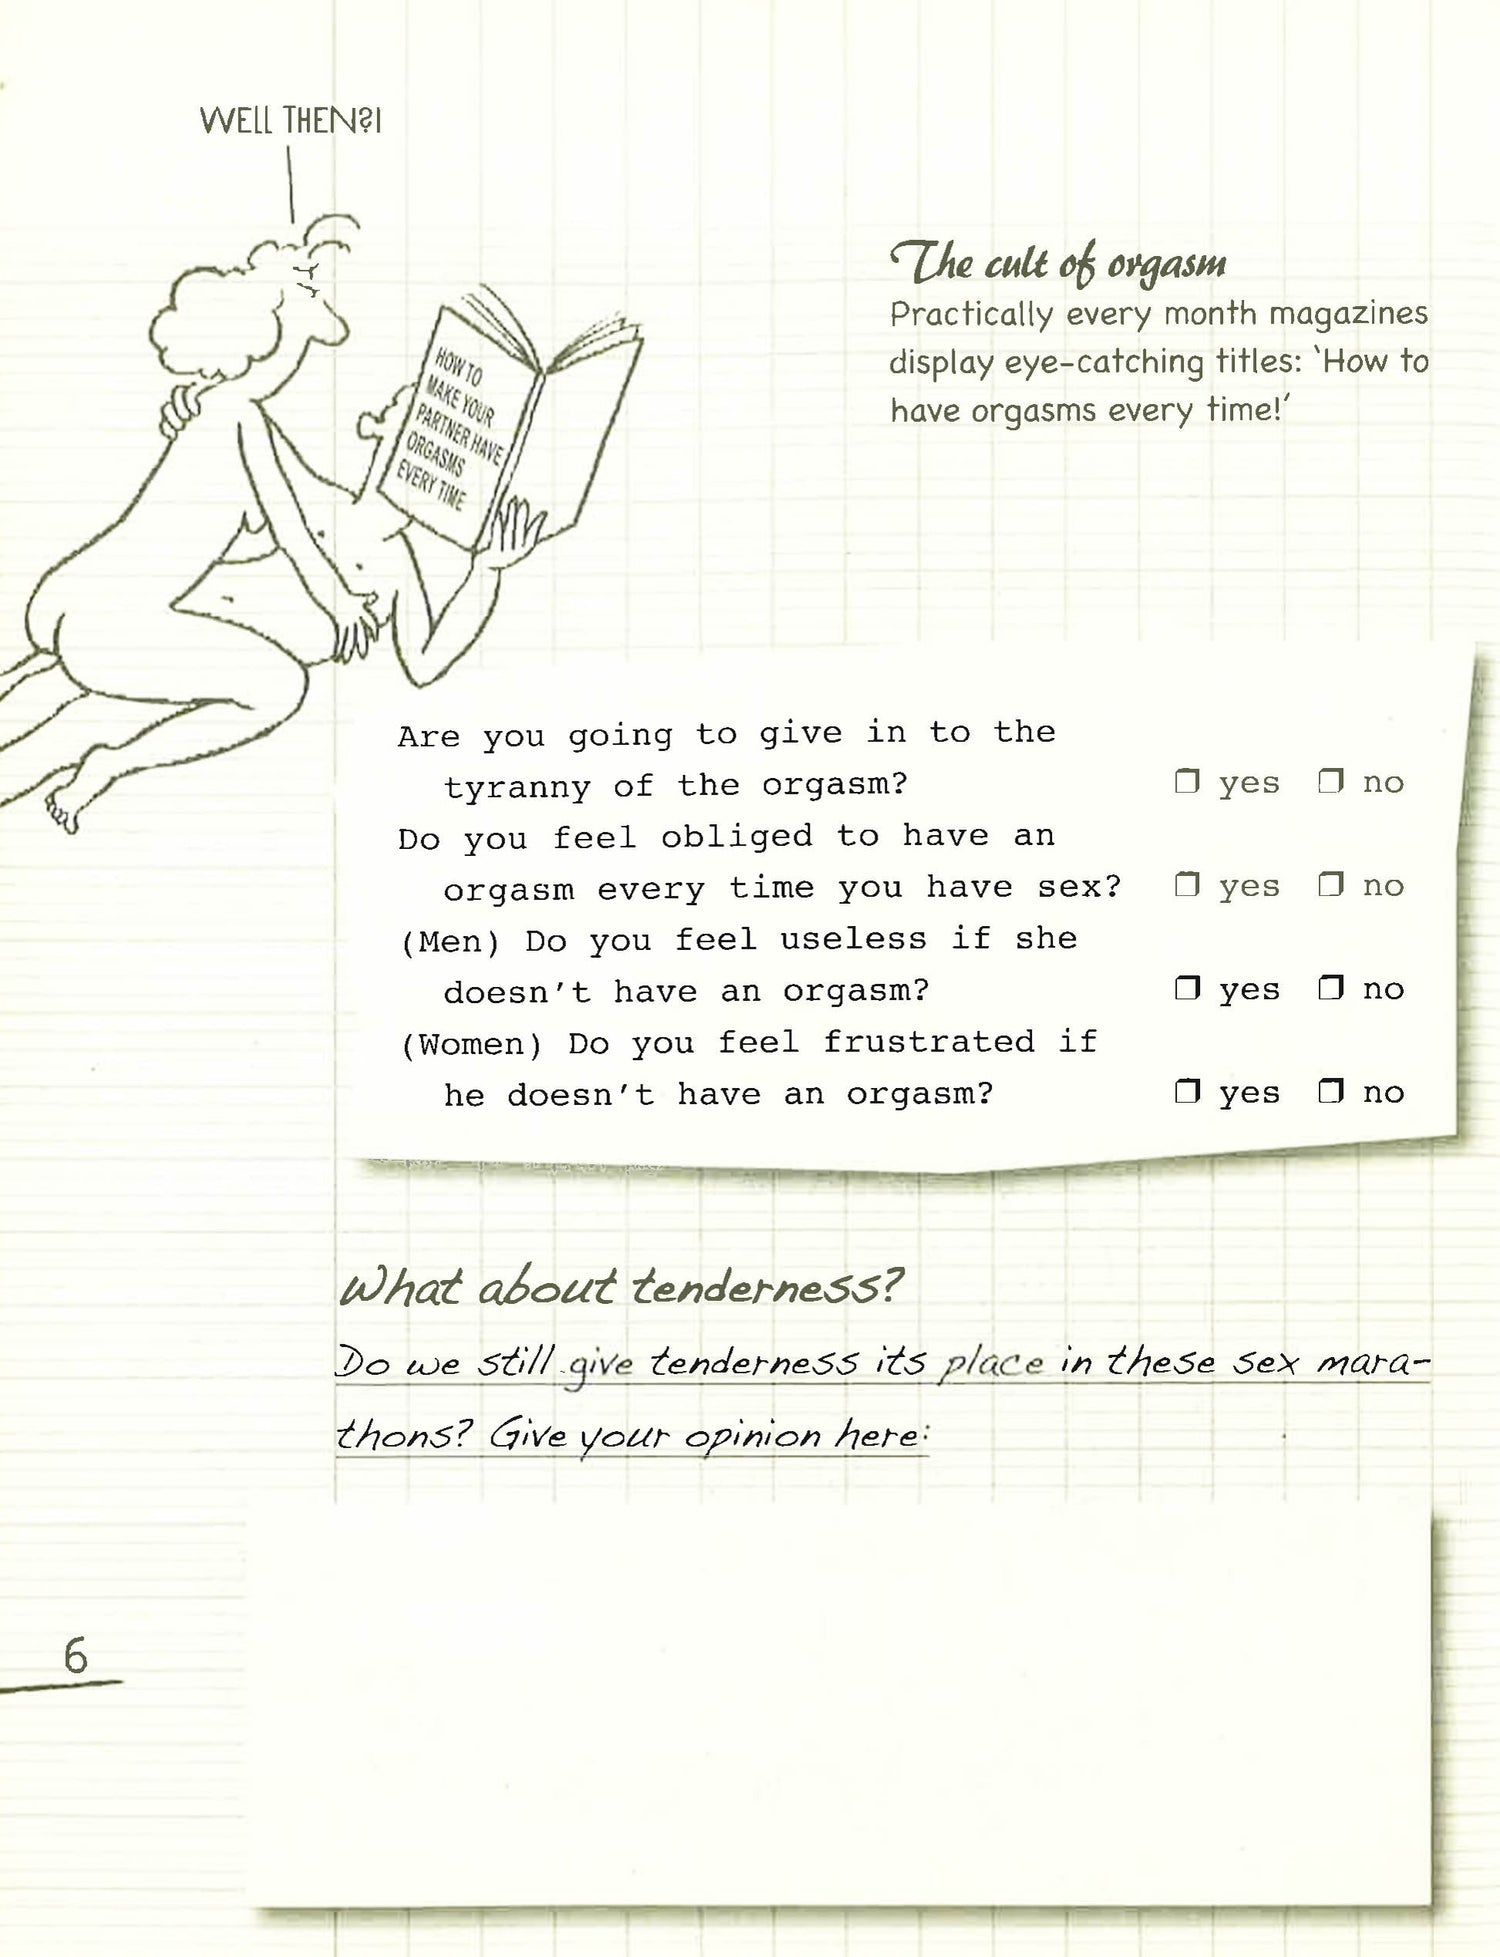 WELL THEN?!
HOW TO
MAKE YOUR
PARTNER HAVE
ORGASMS
EVERY TIME
The cult of orgasm
Practically every month magazines
display eye-catching titles: ‘How to
have orgasms every time!’
Are you going to give in to the
tyranny of the orgasm? ❒ yes ❒ no
Do you feel obliged to have an
orgasm every time you have sex? ❒ yes ❒ no
(Men) Do you feel useless if she
doesn’t have an orgasm? ❒ yes ❒ no
(Women) Do you feel frustrated if
he doesn’t have an orgasm? ❒ yes ❒ no
What about tenderness?
Do we still give tenderness its place in these sex mara-
thons? Give your opinion here:
6